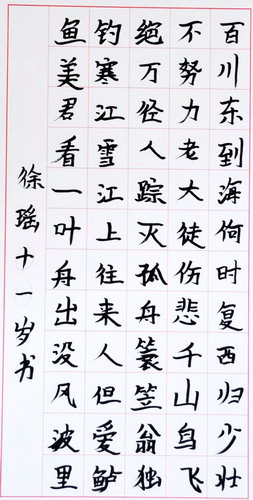 百川东到海何时复西归少壮
不努力老大徒伤悲千山鸟飞
绝万径人踪灭孤舟蓑笠翁独
钓寒江雪江上往来人但爱鲈
鱼美君看一叶舟出没风波里
徐瑶十一岁书